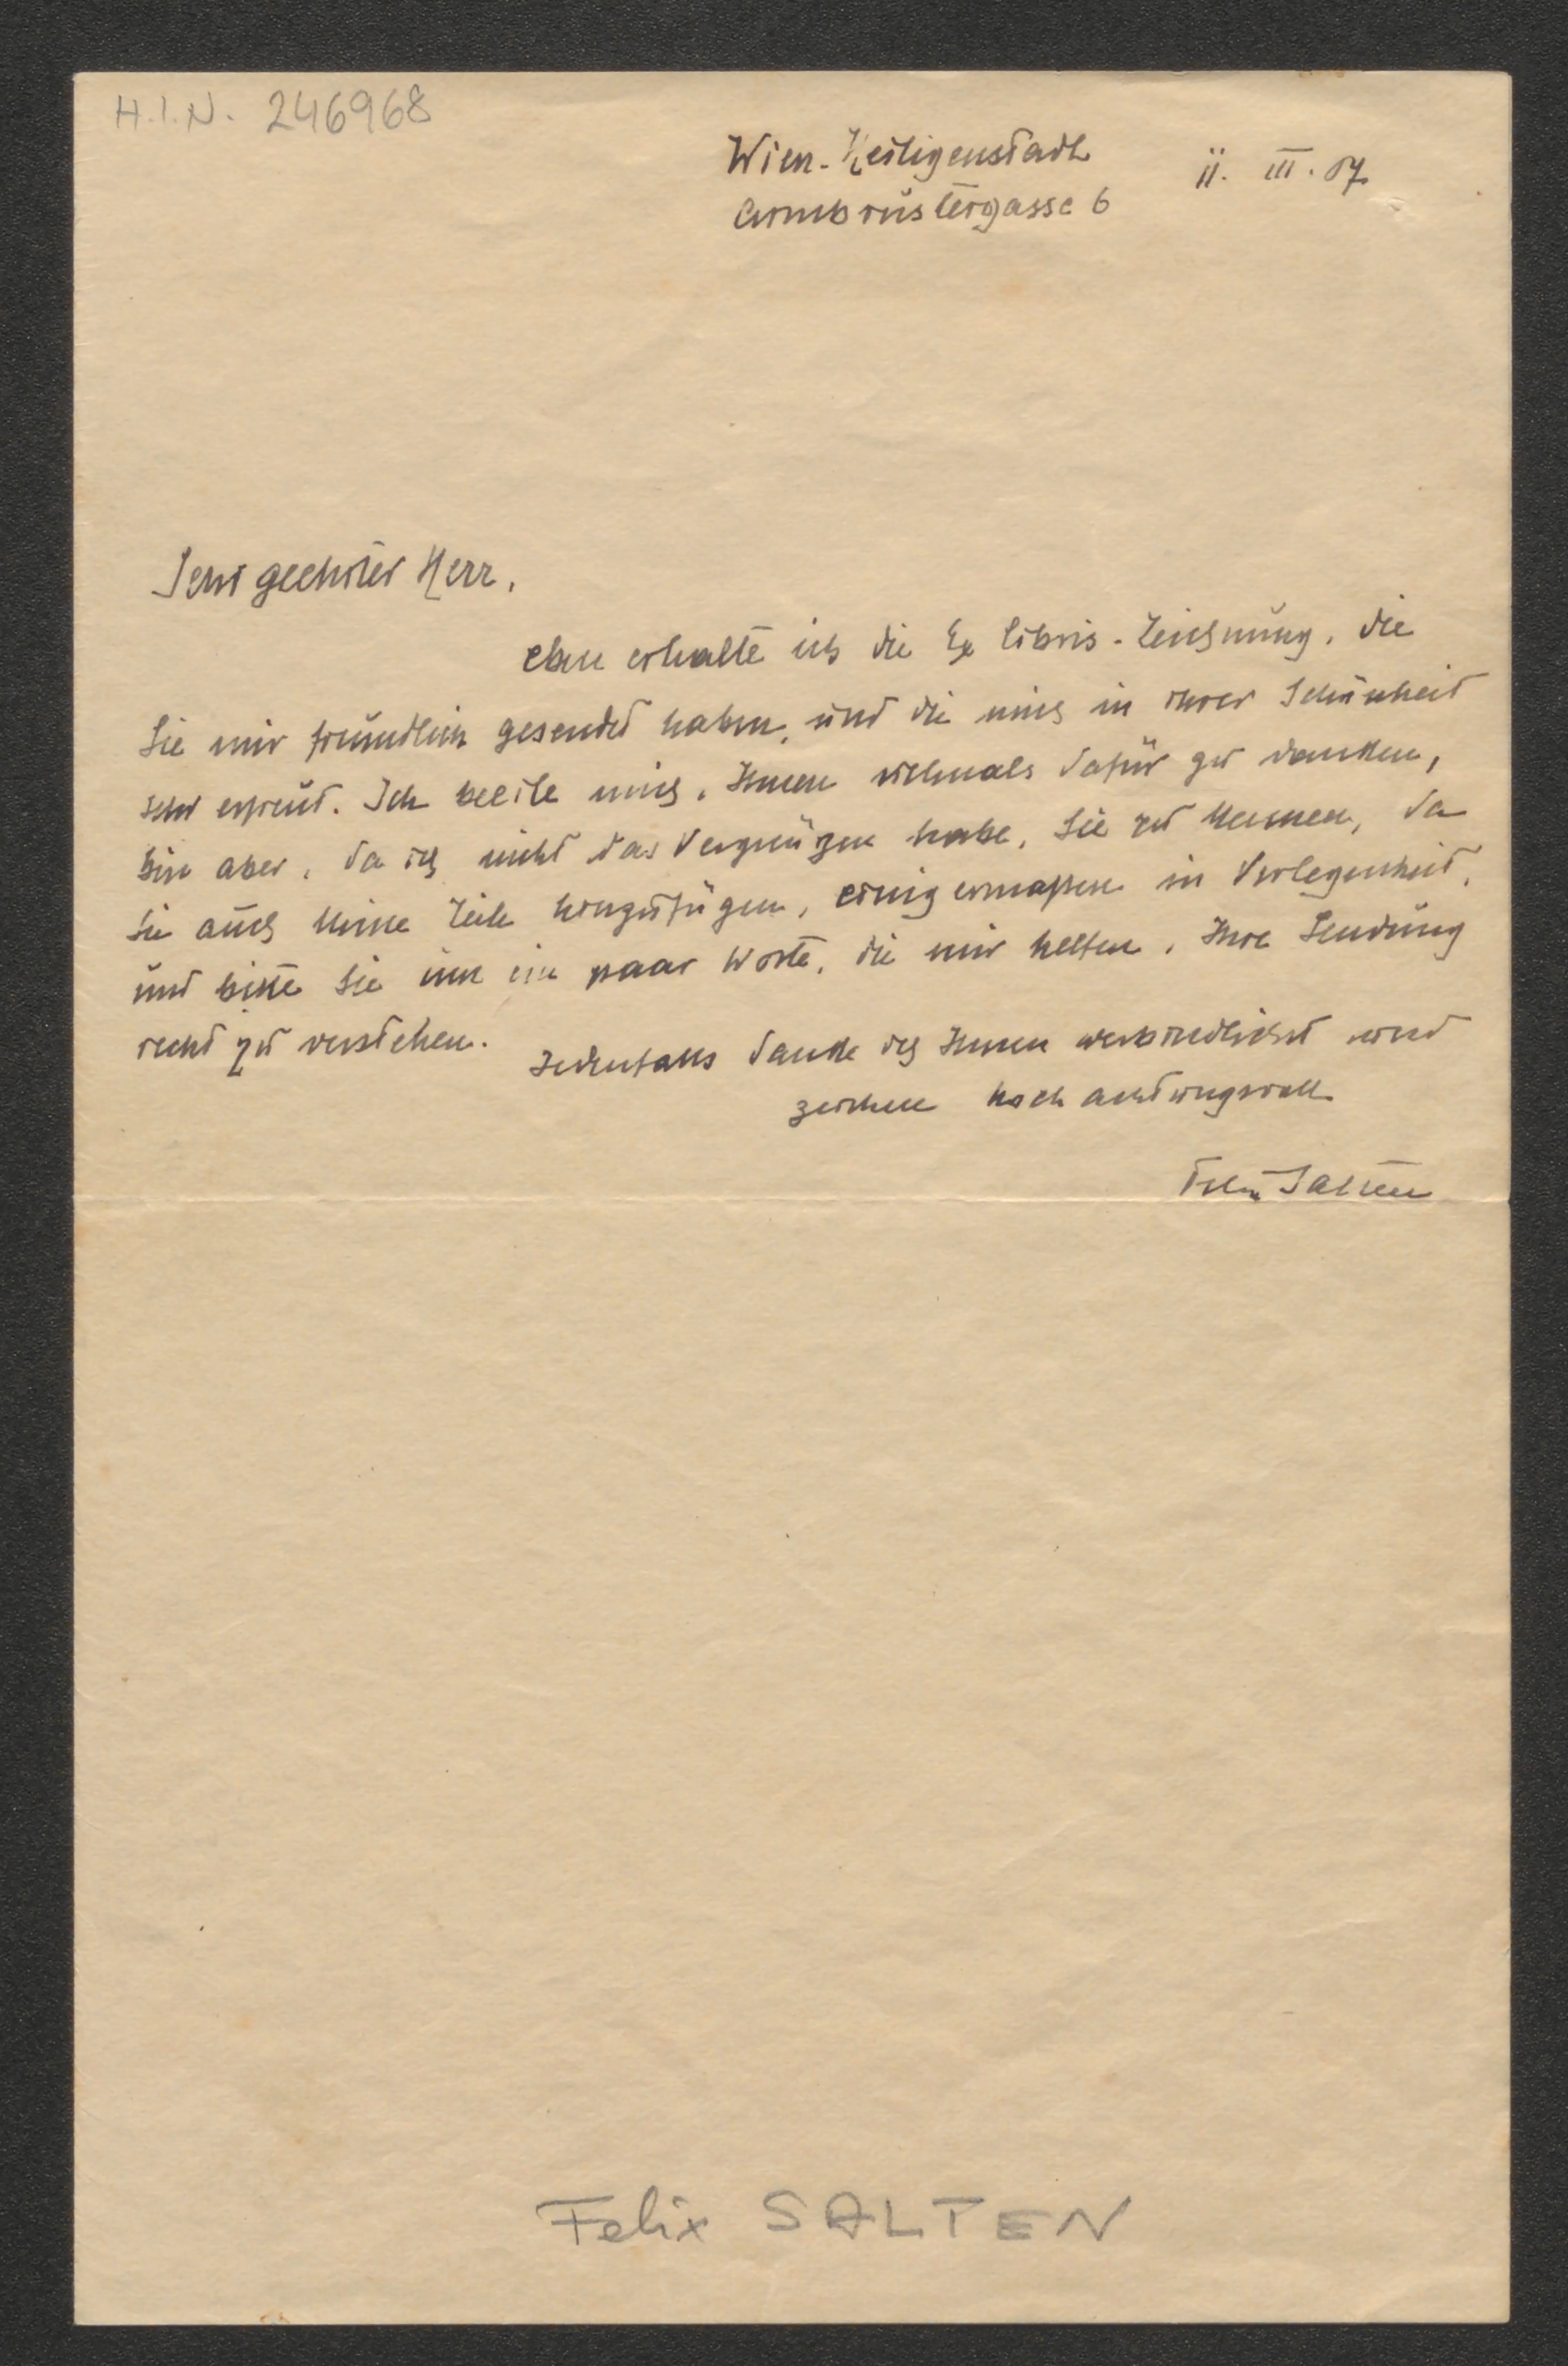 H.I.N. 246968
Wien-Heiligenstadt 11. III. 07
Armbrustergasse 6
Sehr geehrter Herr,
eben erhalte ich die Ex libris-Zeichnung, die
Sie mir freundlich gesendet haben, und die mich in ihrer Schönheit
sehr erfreut. Ich beeile mich, Ihnen vielmals dafür zu danken,
bin aber, da ich nicht das Vergnügen habe, Sie zu kennen, da
Sie auch keine Zeile hinzufügen, einigermaßen in Verlegenheit,
und bitte Sie um ein paar Worte, die mir helfen, Ihre Sendung
recht zu verstehen.
Jedenfalls danke ich Ihnen verbindlichst und
zeichne hochachtungsvoll
Felix Salten
Felix SALTEN